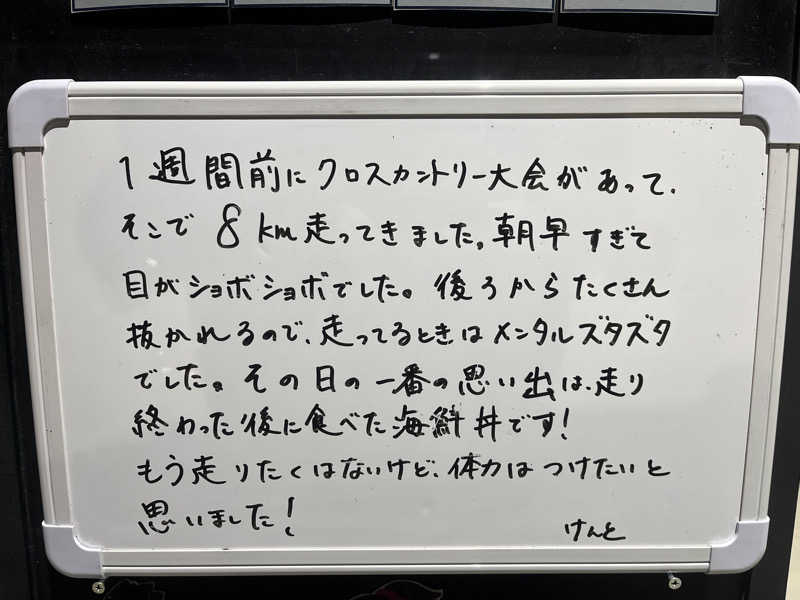 1週間前にクロスカントリー大会があって、
そこで8km走ってきました。朝早すぎて
目がショボショボでした。後ろからたくさん
抜かれるので、走ってるときはメンタルズタズタ
でした。その日の一番の思い出は、走り
終わった後に食べた海鮮丼です!
もう走りたくはないけど、体力はつけたいと
思いました!
けんと